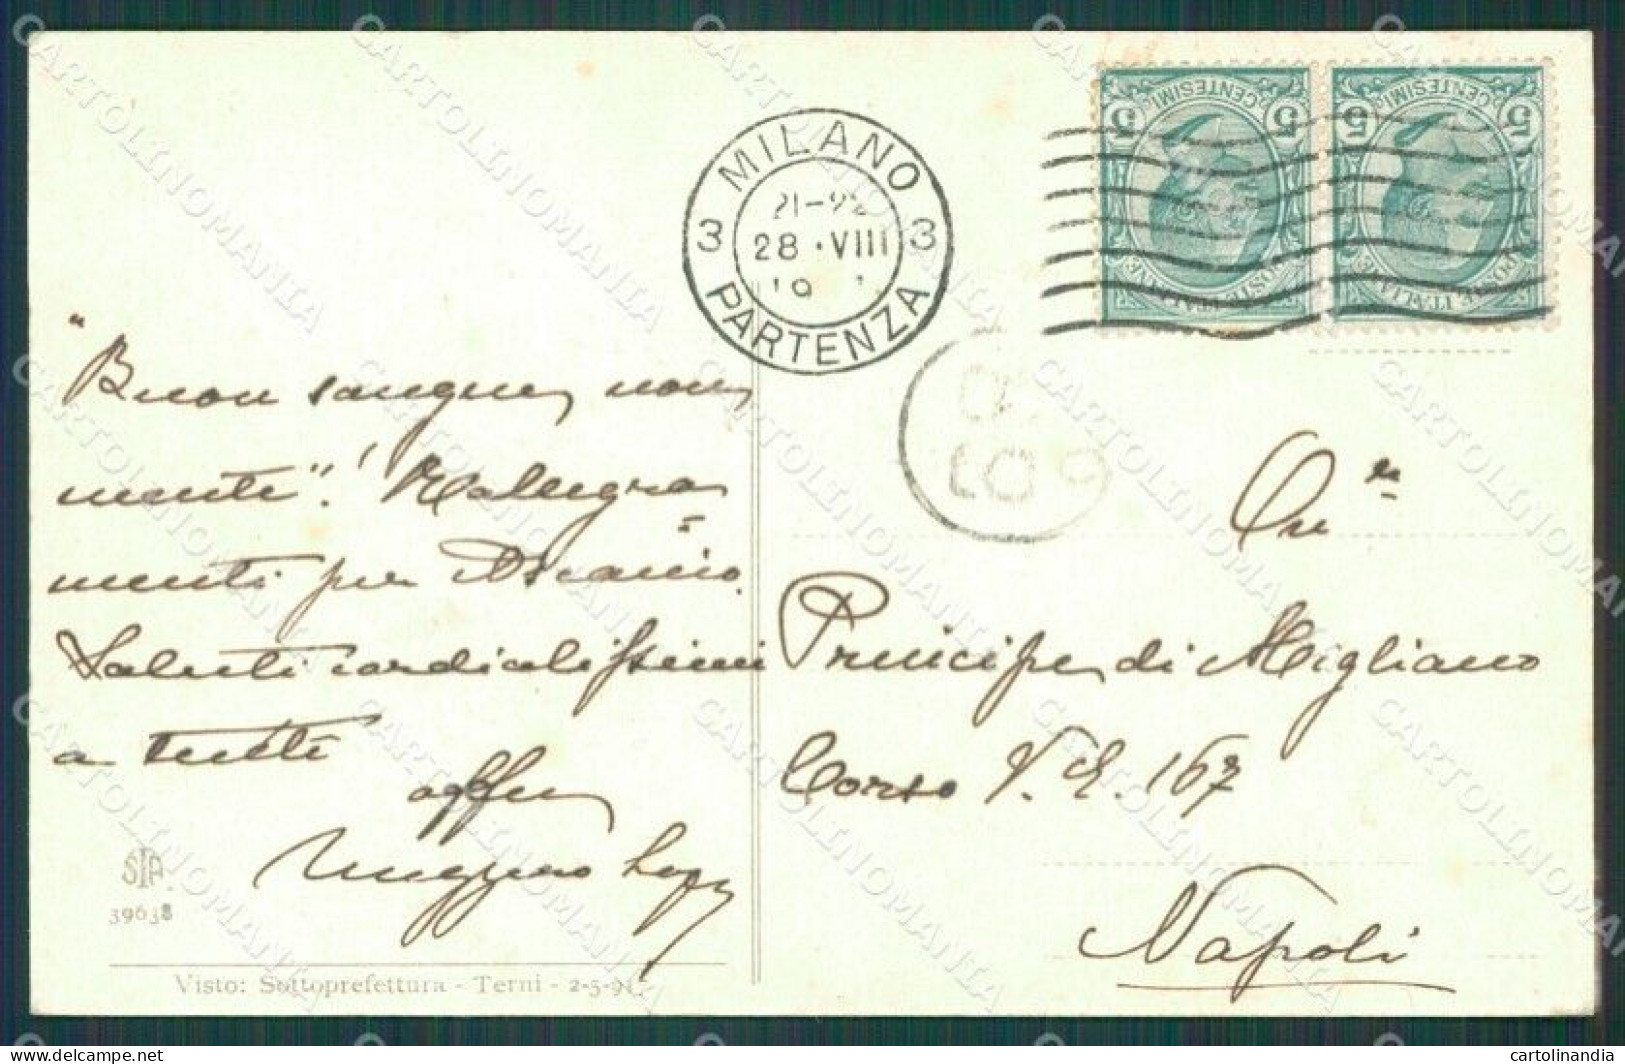 MILANO
3 21-22 3
28 · VIII
PARTENZA
CENTESIMI
5 5
POSTE ITALIANE
CENTESIMI
5 5
POSTE ITALIANE
"Buon sangue, non
mente"! Rallegra=
menti per Ascanio.
Saluti cordialissimi
a tutti
affmo
Ruggero
Principe di Migliano
Corso V. E. 167
Napoli
SIP.
39638
Visto: Sottoprefettura - Terni - 2-5-91
CARTOLINOMANIA
cartolinandia